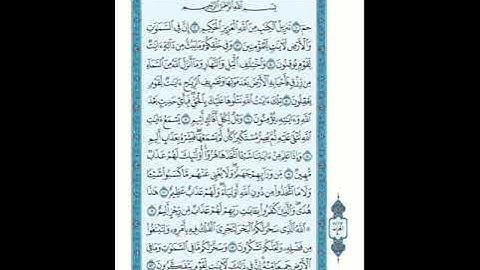 بِسْمِ اللَّهِ الرَّحْمَٰنِ الرَّحِيمِ
حمٓ ۝١ تَنزِيلُ ٱلْكِتَٰبِ مِنَ ٱللَّهِ ٱلْعَزِيزِ ٱلْحَكِيمِ ۝٢ إِنَّ فِى ٱلسَّمَٰوَٰتِ
وَٱلْأَرْضِ لَءَايَٰتٍ لِّلْمُؤْمِنِينَ ۝٣ وَفِى خَلْقِكُمْ وَمَا يَبُثُّ مِن دَآبَّةٍ ءَايَٰتٌ
لِّقَوْمٍ يُوقِنُونَ ۝٤ وَٱخْتِلَٰفِ ٱلَّيْلِ وَٱلنَّهَارِ وَمَآ أَنزَلَ ٱللَّهُ مِنَ ٱلسَّمَآءِ
مِن رِّزْقٍ فَأَحْيَا بِهِ ٱلْأَرْضَ بَعْدَ مَوْتِهَا وَتَصْرِيفِ ٱلرِّيَٰحِ ءَايَٰتٌ لِّقَوْمٍ
يَعْقِلُونَ ۝٥ تِلْكَ ءَايَٰتُ ٱللَّهِ نَتْلُوهَا عَلَيْكَ بِٱلْحَقِّ فَبِأَىِّ حَدِيثٍۭ بَعْدَ
ٱللَّهِ وَءَايَٰتِهِۦ يُؤْمِنُونَ ۝٦ وَيْلٌ لِّكُلِّ أَفَّاكٍ أَثِيمٍ ۝٧ يَسْمَعُ ءَايَٰتِ
ٱللَّهِ تُتْلَىٰ عَلَيْهِ ثُمَّ يُصِرُّ مُسْتَكْبِرًا كَأَن لَّمْ يَسْمَعْهَا فَبَشِّرْهُ بِعَذَابٍ أَلِيمٍ
۝٨ وَإِذَا عَلِمَ مِنْ ءَايَٰتِنَا شَيْـًٔا ٱتَّخَذَهَا هُزُوًا أُو۟لَٰٓئِكَ لَهُمْ عَذَابٌ
مُّهِينٌ ۝٩ مِّن وَرَآئِهِمْ جَهَنَّمُ وَلَا يُغْنِى عَنْهُم مَّا كَسَبُوا۟ شَيْـًٔا
وَلَا مَا ٱتَّخَذُوا۟ مِن دُونِ ٱللَّهِ أَوْلِيَآءَ وَلَهُمْ عَذَابٌ عَظِيمٌ ۝١٠ هَٰذَا
هُدًى وَٱلَّذِينَ كَفَرُوا۟ بِـَٔايَٰتِ رَبِّهِمْ لَهُمْ عَذَابٌ مِّن رِّجْزٍ أَلِيمٌ ۝١١
ٱللَّهُ ٱلَّذِى سَخَّرَ لَكُمُ ٱلْبَحْرَ لِتَجْرِىَ ٱلْفُلْكُ فِيهِ بِأَمْرِهِۦ وَلِتَبْتَغُوا۟
مِن فَضْلِهِۦ وَلَعَلَّكُمْ تَشْكُرُونَ ۝١٢ وَسَخَّرَ لَكُم مَّا فِى ٱلسَّمَٰوَٰتِ وَمَا فِى
ٱلْأَرْضِ جَمِيعًا مِّنْهُ إِنَّ فِى ذَٰلِكَ لَءَايَٰتٍ لِّقَوْمٍ يَتَفَكَّرُونَ ۝١٣